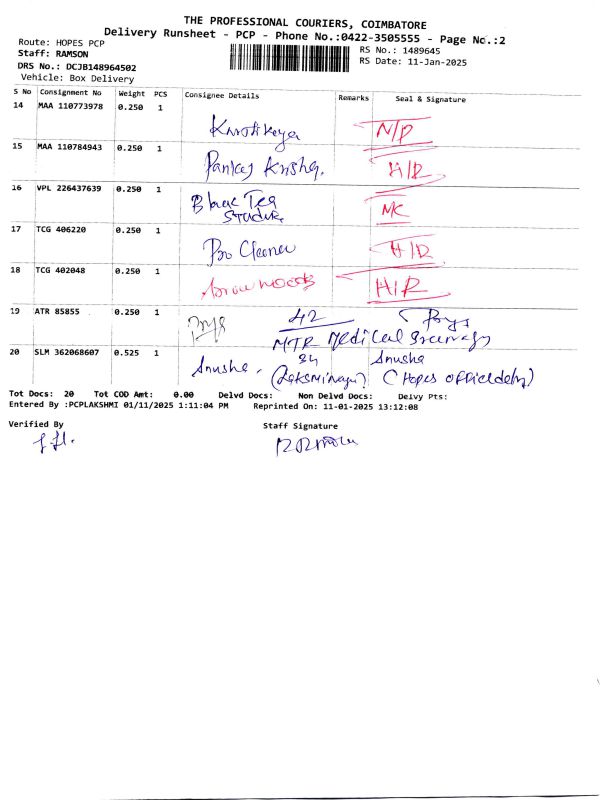 THE PROFESSIONAL COURIERS, COIMBATORE
Delivery Runsheet - PCP - Phone No.:0422-3505555 - Page No.:2
Route: HOPES PCP
RS No.: 1489645
Staff: RAMSON
RS Date: 11-Jan-2025
DRS No.: DCJB148964502
Vehicle: Box Delivery
S No Consignment No Weight PCS Consignee Details Remarks Seal & Signature
14 MAA 110773978 0.250 1
N/P
15 MAA 110784943 0.250 1
Pankaj Krishna. H/R
16 VPL 226437639 0.250 1
NC
17 TCG 406220 0.250 1
Pro Cleaner H/R
18 TCG 402048 0.250 1
H/R
19 ATR 85855 0.250 1
42
MTR Medical
20 SLM 362068607 0.525 1
Anusha. Anusha
(Hopes
Tot Docs: 20 Tot COD Amt: 0.00 Delvd Docs: Non Delvd Docs: Delvy Pts:
Entered By :PCPLAKSHMI 01/11/2025 1:11:04 PM Reprinted On: 11-01-2025 13:12:08
Verified By Staff Signature